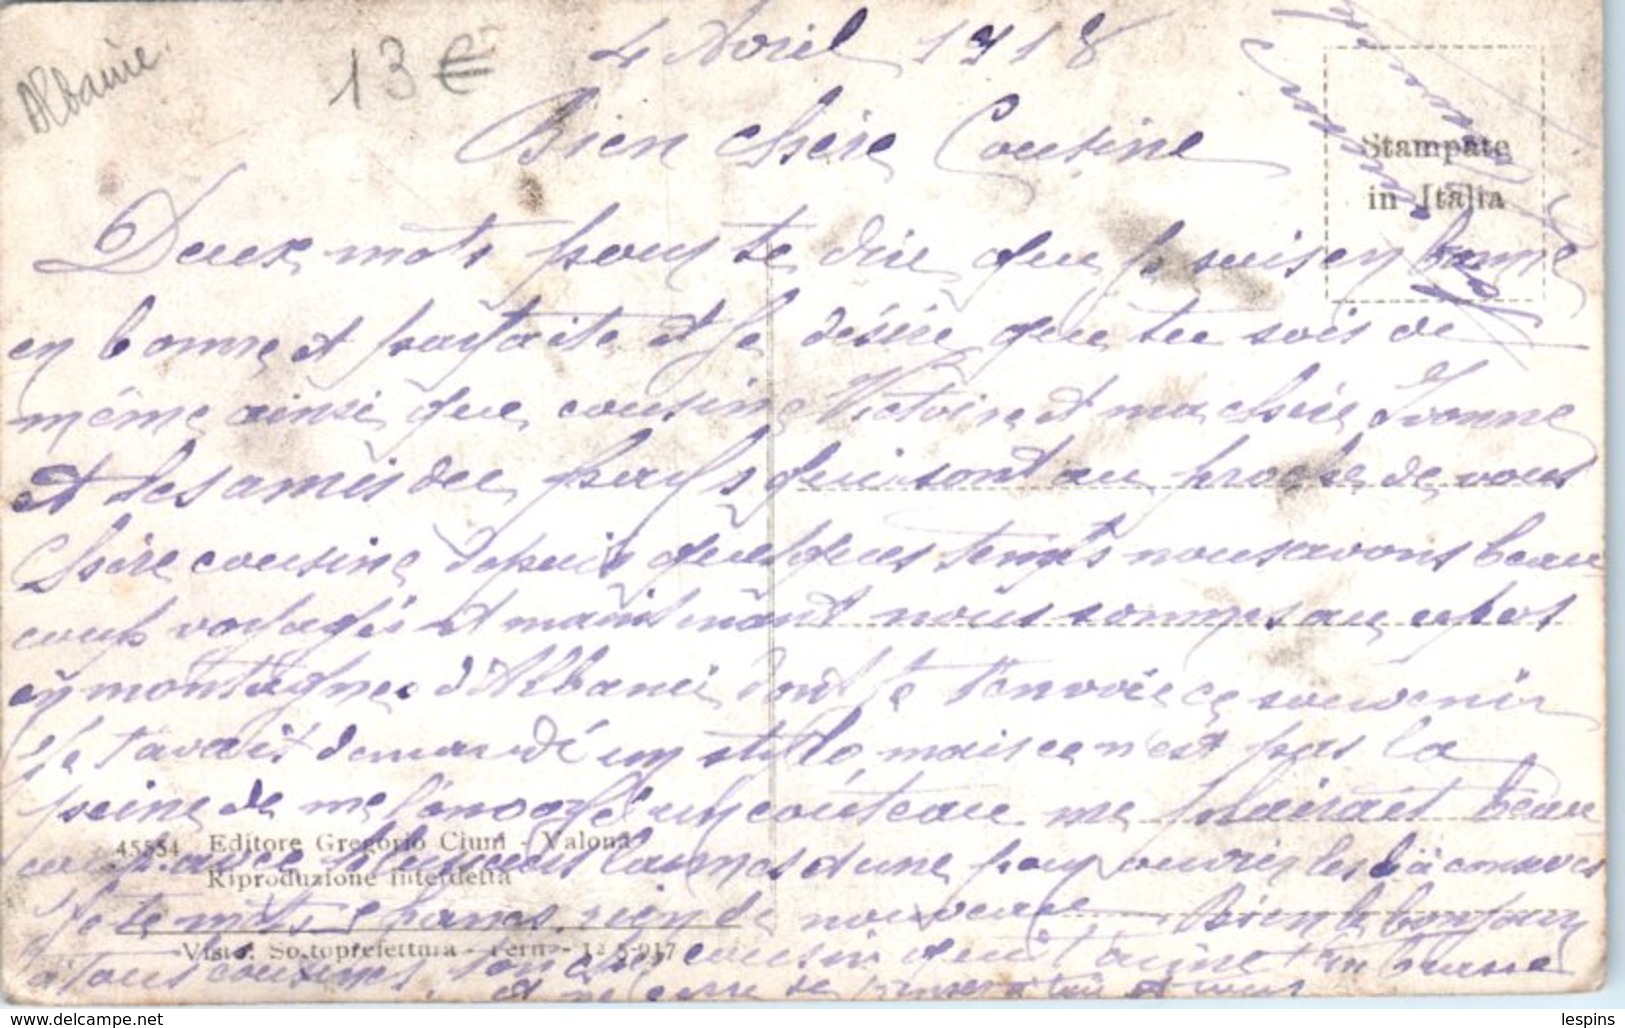 Albanie
13 €
4 Avril 1918
Bien chère Cousine
Deux mots pour te dire que je suis en bonne
en bonne et parfaite et je désire que tu sois de
même ainsi que cousine Victoire et ma chère Ivonne
et les amis du pays qui sont au proche de vous
Chère cousine depuis quelques temps nous avons beau
coup voyagés et maintenant nous sommes au repos
en montagne d'Albanie dont je t'envoie ce souvenir
Je t'avait demandé un stylo mais ce n'est pas la
peine de me l'envoyé un couteau me plairait beau
coup avec plusieurs lames et une pour ouvrir les conserves
Je te rien de nouveau Bien le bonjour
à tous cousines, ton cousin qui t'aime t'embrasse
et ne cesse de penser à toi et vous
Stampate
in Italia
45554 Editore Gregorio Ciuni - Valona
Riproduzione interdetta
Visto: Sottoprefettura - - 1ª 5-917
lespins
www.delcampe.net